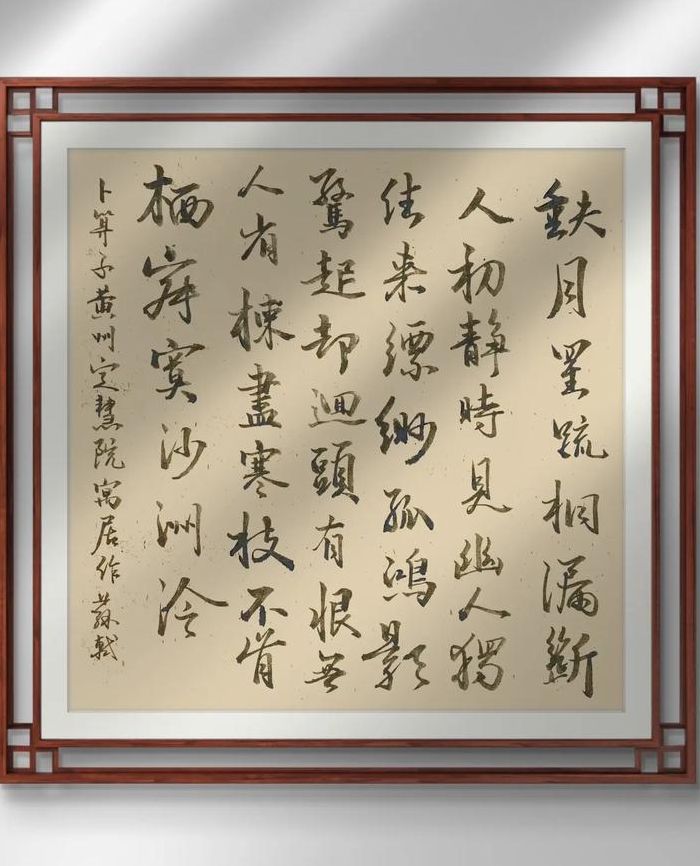 缺月罣疏桐漏斷
人初靜時見幽人獨
往来縹緲孤鴻影
驚起却迴頭有恨無
人省揀盡寒枝不肯
栖寂寞沙洲冷
卜算子黄州定慧院寓居作蘇軾